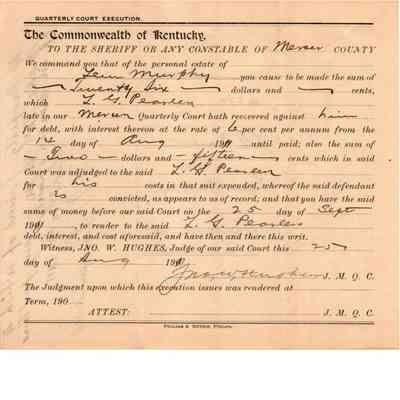 QUARTERLY COURT EXECUTION.
The Commonwealth of Kentucky.
TO THE SHERIFF OR ANY CONSTABLE OF Mercer COUNTY
We command you that of the personal estate of
Murphy you cause to be made the sum of
Twenty Six dollars and cents,
which L. G.
late in our Mercer Quarterly Court hath recovered against him
for debt, with interest thereon at the rate of 6 per cent per annum from the
14 day of Aug 1911 until paid; also the sum of
Two dollars and fifteen cents which in said
Court was adjudged to the said L. G.
for his costs in that suit expended, whereof the said defendant
is convicted, as appears to us of record; and that you have the said
sums of money before our said Court on the 25 day of Sept
1911, to render to the said L. G.
debt, interest, and cost aforesaid, and have then and there this writ.
Witness, JNO. W. HUGHES, Judge of our said Court this 25
day of Aug 1911
Jno W Hughes J. M. Q. C.
The Judgment upon which this execution issues was rendered at
Term, 190
ATTEST: J. M. Q. C.